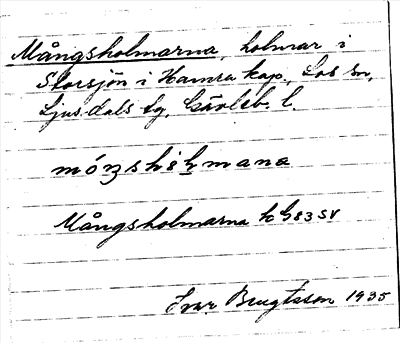 Mångsholmarna, holmar i
Storsjön i Hamra kap., Los sn,
Ljusdals tg, Gävleb. l.
Mångsholmarna k G83 SV
Ivar Bengtsson 1935